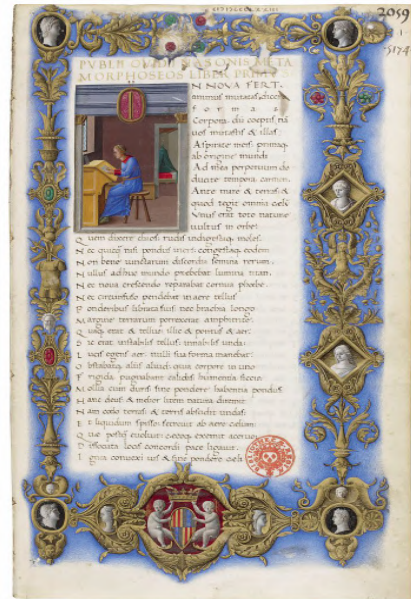 2059
1
5174
PVBLII OVIDII NASONIS META
MORPHOSEOS LIBER PRIMVS
IN NOVA FERT
animus mutatas dicere
formas
Corpora dii coeptis nã
uos mutastis & illas
Aspirate meis: primaq;
ab origine mundi
Ad mea perpetuum de
ducite tempora carmen.
Ante mare & terras &
quod tegit omnia celũ
Vnus erat toto nature
uultus in orbe:
Quem dixere chaos: rudis indigestaq; moles.
Nec quicq̃ nisi pondus iners: congestaq; eodem
Non bene iunctarum discordia semina rerum.
Nullus adhuc mundo prebebat lumina titan.
Nec noua crescendo reparabat cornua phoebe.
Nec circunfuso pendebat in aere tellus
Ponderibus librata suis: nec brachia longo
Margine terrarum porrexerat amphitrite.
Quaq; erat & tellus: illic & pontus & aer.
Sic erat instabilis tellus: innabilis unda:
Lucis egens aer. nulli sua forma manebat:
Obstabatq; aliis aliud: quia corpore in uno
Frigida pugnabant calidis: humentia siccis:
Mollia cum duris: sine pondere habentia pondus.
Hanc deus & melior litem natura diremit.
Nam coelo terras: & terris abscidit undas:
Et liquidum spisso secreuit ab aere coelum:
Que postq̃ euoluit: cecoq; exemit aceruo:
Dissociata locis concordi pace ligauit.
Ignea conuexi uis & sine pondere celi